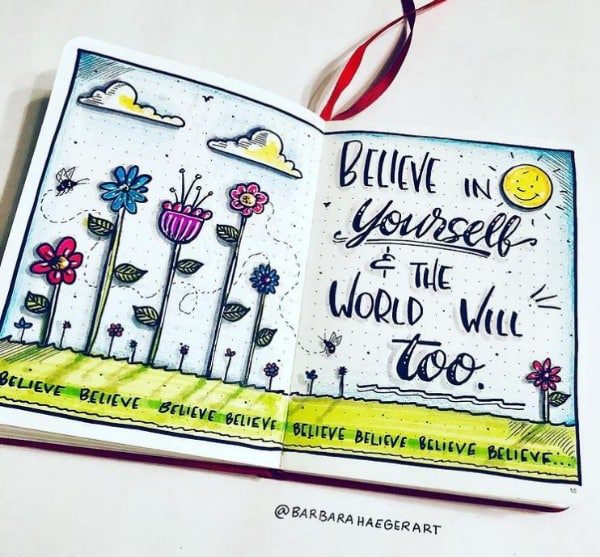 BELIEVE IN
Yourself
& THE
WORLD WILL
TOO.
BELIEVE BELIEVE BELIEVE BELIEVE BELIEVE BELIEVE BELIEVE BELIEVE...
50
@BARBARAHAEGERART